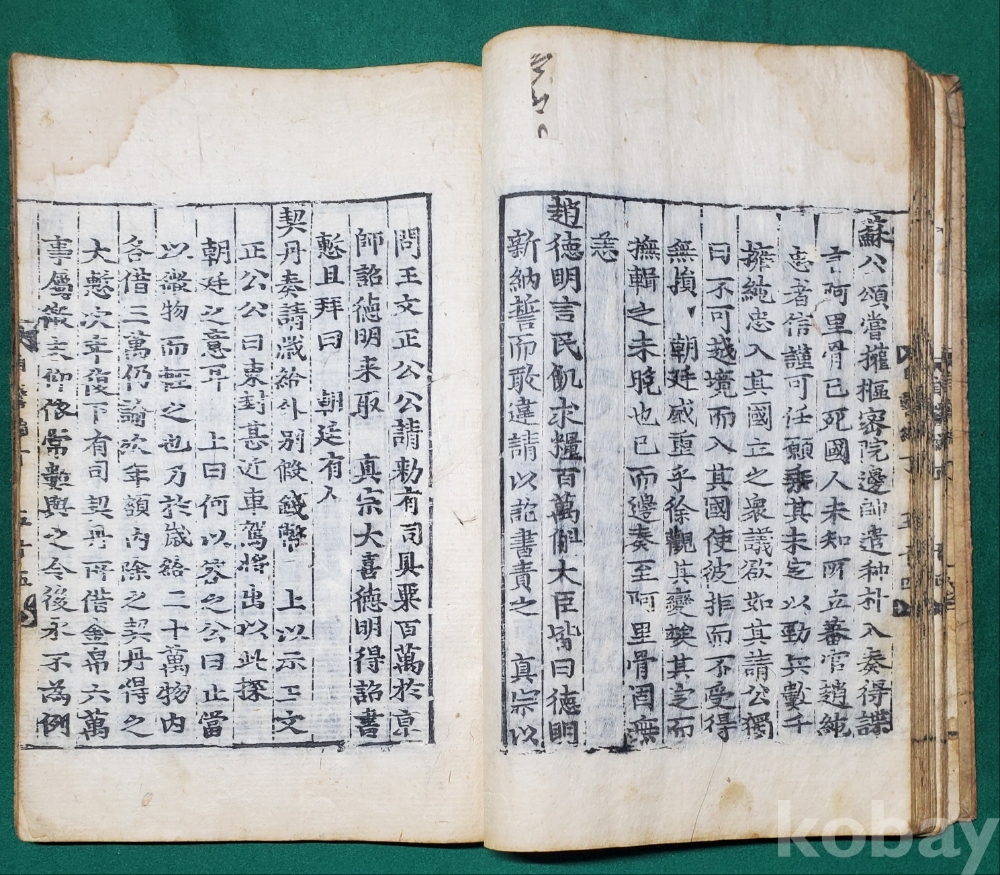 蘇公頌嘗擁樞密院邊帥遣种朴入奏得諜
言阿里骨已死國人未知所立蕃官趙純
忠者信謹可任願乘其未定以勁兵數千
擁純忠入其國立之衆議欲如其請公獨
曰不可越境而入其國使彼拒而不受得
無損朝廷威重乎徐觀其變竢其定而
撫輯之未晚也已而邊奏至阿里骨固無
恙
趙德明言民飢求糧百萬斛大臣皆曰德明
新納誓而敢違請以詔書責之 真宗以
問王文正公公請勅有司具粟百萬於京
師詔德明来取 真宗大喜德明得詔書
慙且拜曰 朝廷有人
契丹奏請歲給外別假錢幣 上以示王文
正公公曰東封甚近車駕將出以此探
朝廷之意耳 上曰何以答之公曰止當
以微物而輕之也乃於歲給二十萬物内
各借三萬仍諭次年額内除之契丹得之
大慙次年復下有司契丹所借金帛六萬
事屬微末仰依常數與之今後永不為例
kobay